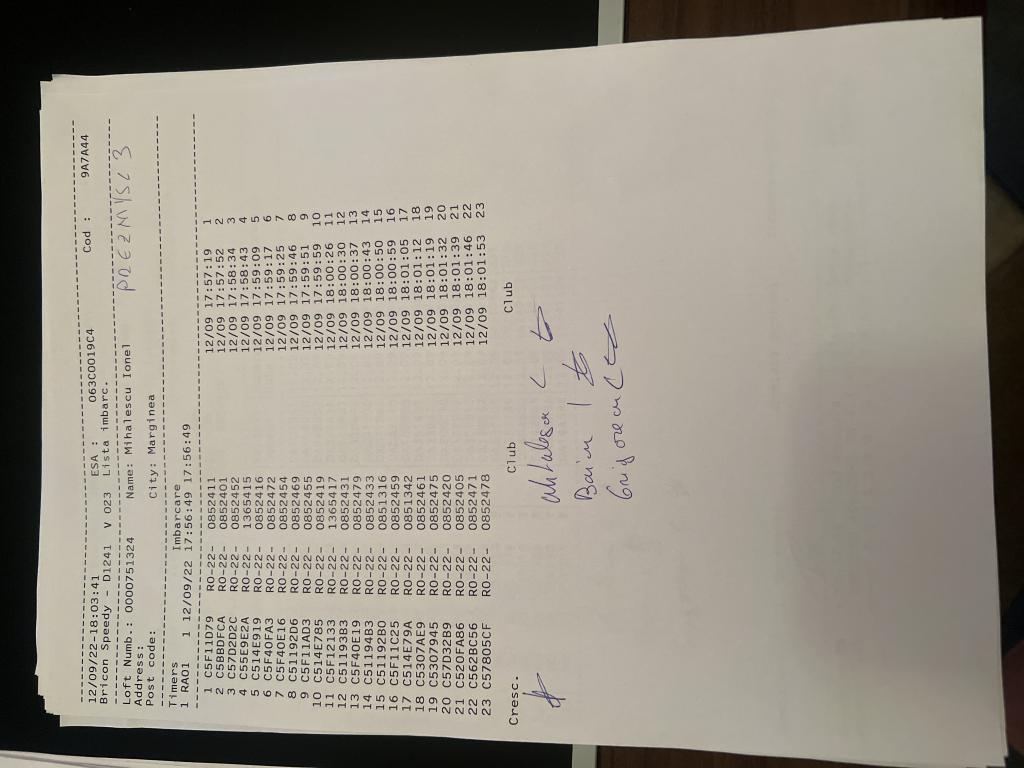 12/09/22-18:03:41 ESA : 063C0019C4 Cod : 9A7A44
Bricon Speedy - D1241 V 023 Lista imbarc.
Loft Numb.: 0000751324 Name: Mihalescu Ionel PREZMYSL 3
Address:
Post code: City: Marginea
Timers Imbarcare
1 RA01 1 12/09/22 17:56:49 17:56:49
1 C5F11D79 RO-22- 0852411 12/09 17:57:19 1
2 C5BBDFCA RO-22- 0852401 12/09 17:57:52 2
3 C57D2D2C RO-22- 0852452 12/09 17:58:34 3
4 C55E9E2A RO-22- 1365415 12/09 17:58:43 4
5 C514E919 RO-22- 0852416 12/09 17:59:09 5
6 C5F40FA3 RO-22- 0852472 12/09 17:59:17 6
7 C5F40E16 RO-22- 0852454 12/09 17:59:25 7
8 C51192D6 RO-22- 0852469 12/09 17:59:46 8
9 C5F11AD3 RO-22- 0852455 12/09 17:59:51 9
10 C514E785 RO-22- 0852419 12/09 17:59:59 10
11 C5F12133 RO-22- 1365417 12/09 18:00:26 11
12 C51193B3 RO-22- 0852431 12/09 18:00:30 12
13 C5F40E19 RO-22- 0852479 12/09 18:00:37 13
14 C51194B3 RO-22- 0852433 12/09 18:00:43 14
15 C51192B0 RO-22- 0851316 12/09 18:00:50 15
16 C5F11C25 RO-22- 0852459 12/09 18:00:59 16
17 C514E79A RO-22- 0851342 12/09 18:01:05 17
18 C5307AE9 RO-22- 0852461 12/09 18:01:12 18
19 C5307945 RO-22- 0852475 12/09 18:01:19 19
20 C57D32B9 RO-22- 0852420 12/09 18:01:32 20
21 C520FA86 RO-22- 0852405 12/09 18:01:39 21
22 C562BC56 RO-22- 0852471 12/09 18:01:46 22
23 C57805CF RO-22- 0852478 12/09 18:01:53 23
Cresc. Club Club